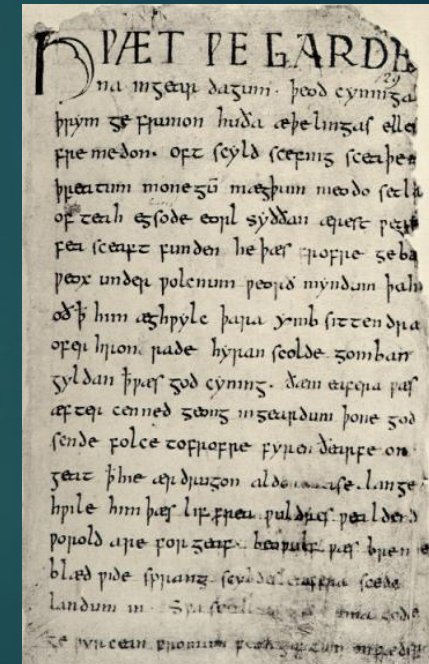 HǷÆT ǷE GARDE
129
na ingear dagum. þeod cyninga
þrym ge frunon huða æþelingas elle
fre medon. oft scyld scefing sceaþen
þreatum monegū mægþum meodo setla
of teah egsode eorl syððan ærest ƿear
fea sceaft funden he þæs frofre geba
ƿeox under ƿolcnum ƿeorð myndum þah
oð ꝥ him æghƿylc þara ymb sittendra
ofer hron rade hyran scolde gomban
gyldan ꝥ ƿæs god cyning. ðæm eafera ƿæs
æfter cenned geong in geardum þone god
sende folce tofrofre fyren ðearfe on
geat ꝥ hie ær drugon lange
hƿile him þæs lif frea ƿuldres ƿealdend
ƿorold are for geaf. beoƿulf ƿæs breme
blæd ƿide sprang scyldes eafera scede
landum in. Sƿa gode
ge ƿyrcean fromum